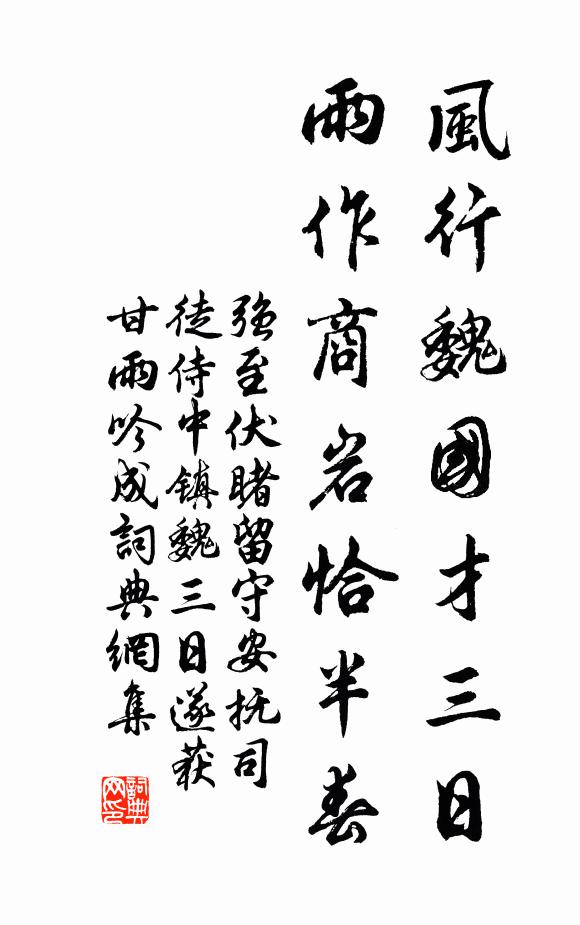 風行魏國才三日
雨作商岩恰半春
強至伏睹留守安抚司
徒侍中镇魏三日遂获
甘雨吟成詞典網集
詞典
网印